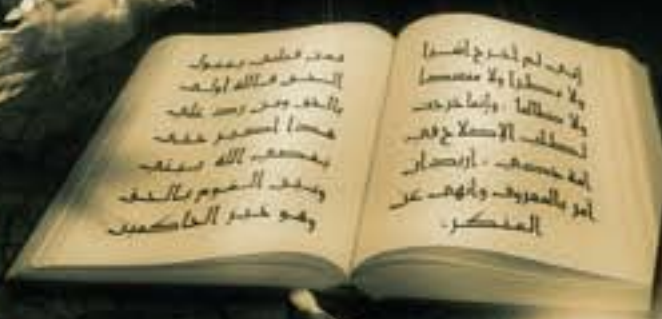 إني لم أخرج أشرا
ولا بطرا ولا مفسدا
ولا ظالما . وإنما خرجت
لطلب الإصلاح في
أمة جدي . أريد أن
آمر بالمعروف وأنهى عن
المنكر .
فمن قبلني بقبول
الحق فالله أولى
بالحق ومن رد علي
هذا أصبر حتى
يقضي الله بيني
وبين القوم بالحق
وهو خير الحاكمين